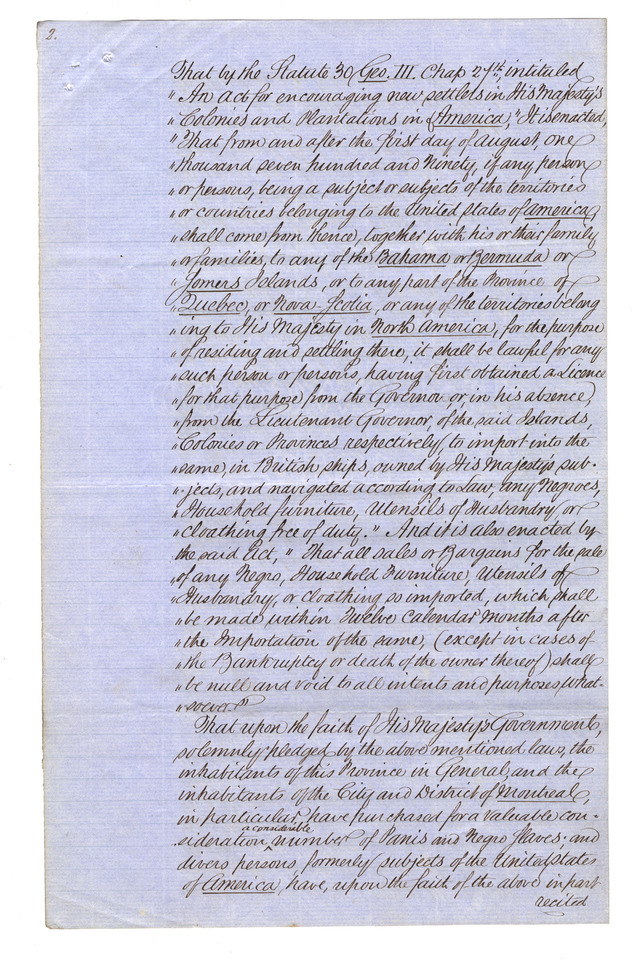 2.
That by the Statute 30 Geo. III. Chap 27th, intituled
"An Act for encouraging new settlers in His Majesty's
"Colonies and Plantations in America," "It is enacted,
"That from and after the first day of August, one
"thousand seven hundred and Ninety, if any person
"or persons, being a subject or subjects of the territories
"or countries belonging to the United States of America,
"shall come from thence, together with his or their family
"or families, to any of the Bahama or Bermuda or
"Somers Islands, or to any part of the Province of
"Quebec, or Nova Scotia, or any of the territories belong
"ing to His Majesty in North America, for the purpose
"of residing and settling there, it shall be lawful for any
"such person or persons, having first obtained a Licence
"for that purpose from the Governor or in his absence,
"from the Lieutenant Governor, of the said Islands,
"Colonies or Provinces respectively, to import into the
"same, in British ships, owned by His Majesty's sub-
"jects, and navigated according to Law, any Negroes,
"Household furniture, Utensils of Husbandry or
"cloathing free of duty." And it is also enacted by
the said Act, "That all sales or Bargains for the sale
"of any Negro, Household Furniture, Utensils of
"Husbandry, or cloathing so imported, which shall
"be made within Twelve Calendar Months after
"the Importation of the same, (except in cases of
"the Bankruptcy or death of the owner thereof) shall
"be null and void to all intents and purposes, what-
"soever."
That upon the faith of His Majesty's Government,
solemnly pledged by the above mentioned laws, the
inhabitants of this Province in General, and the
inhabitants of the City and District of Montreal,
in particular, have purchased for a valuable con-
sideration, a considerable number of Panis and Negro Slaves, and
divers persons, formerly subjects of the United States
of America, have, upon the faith of the above in part
recited